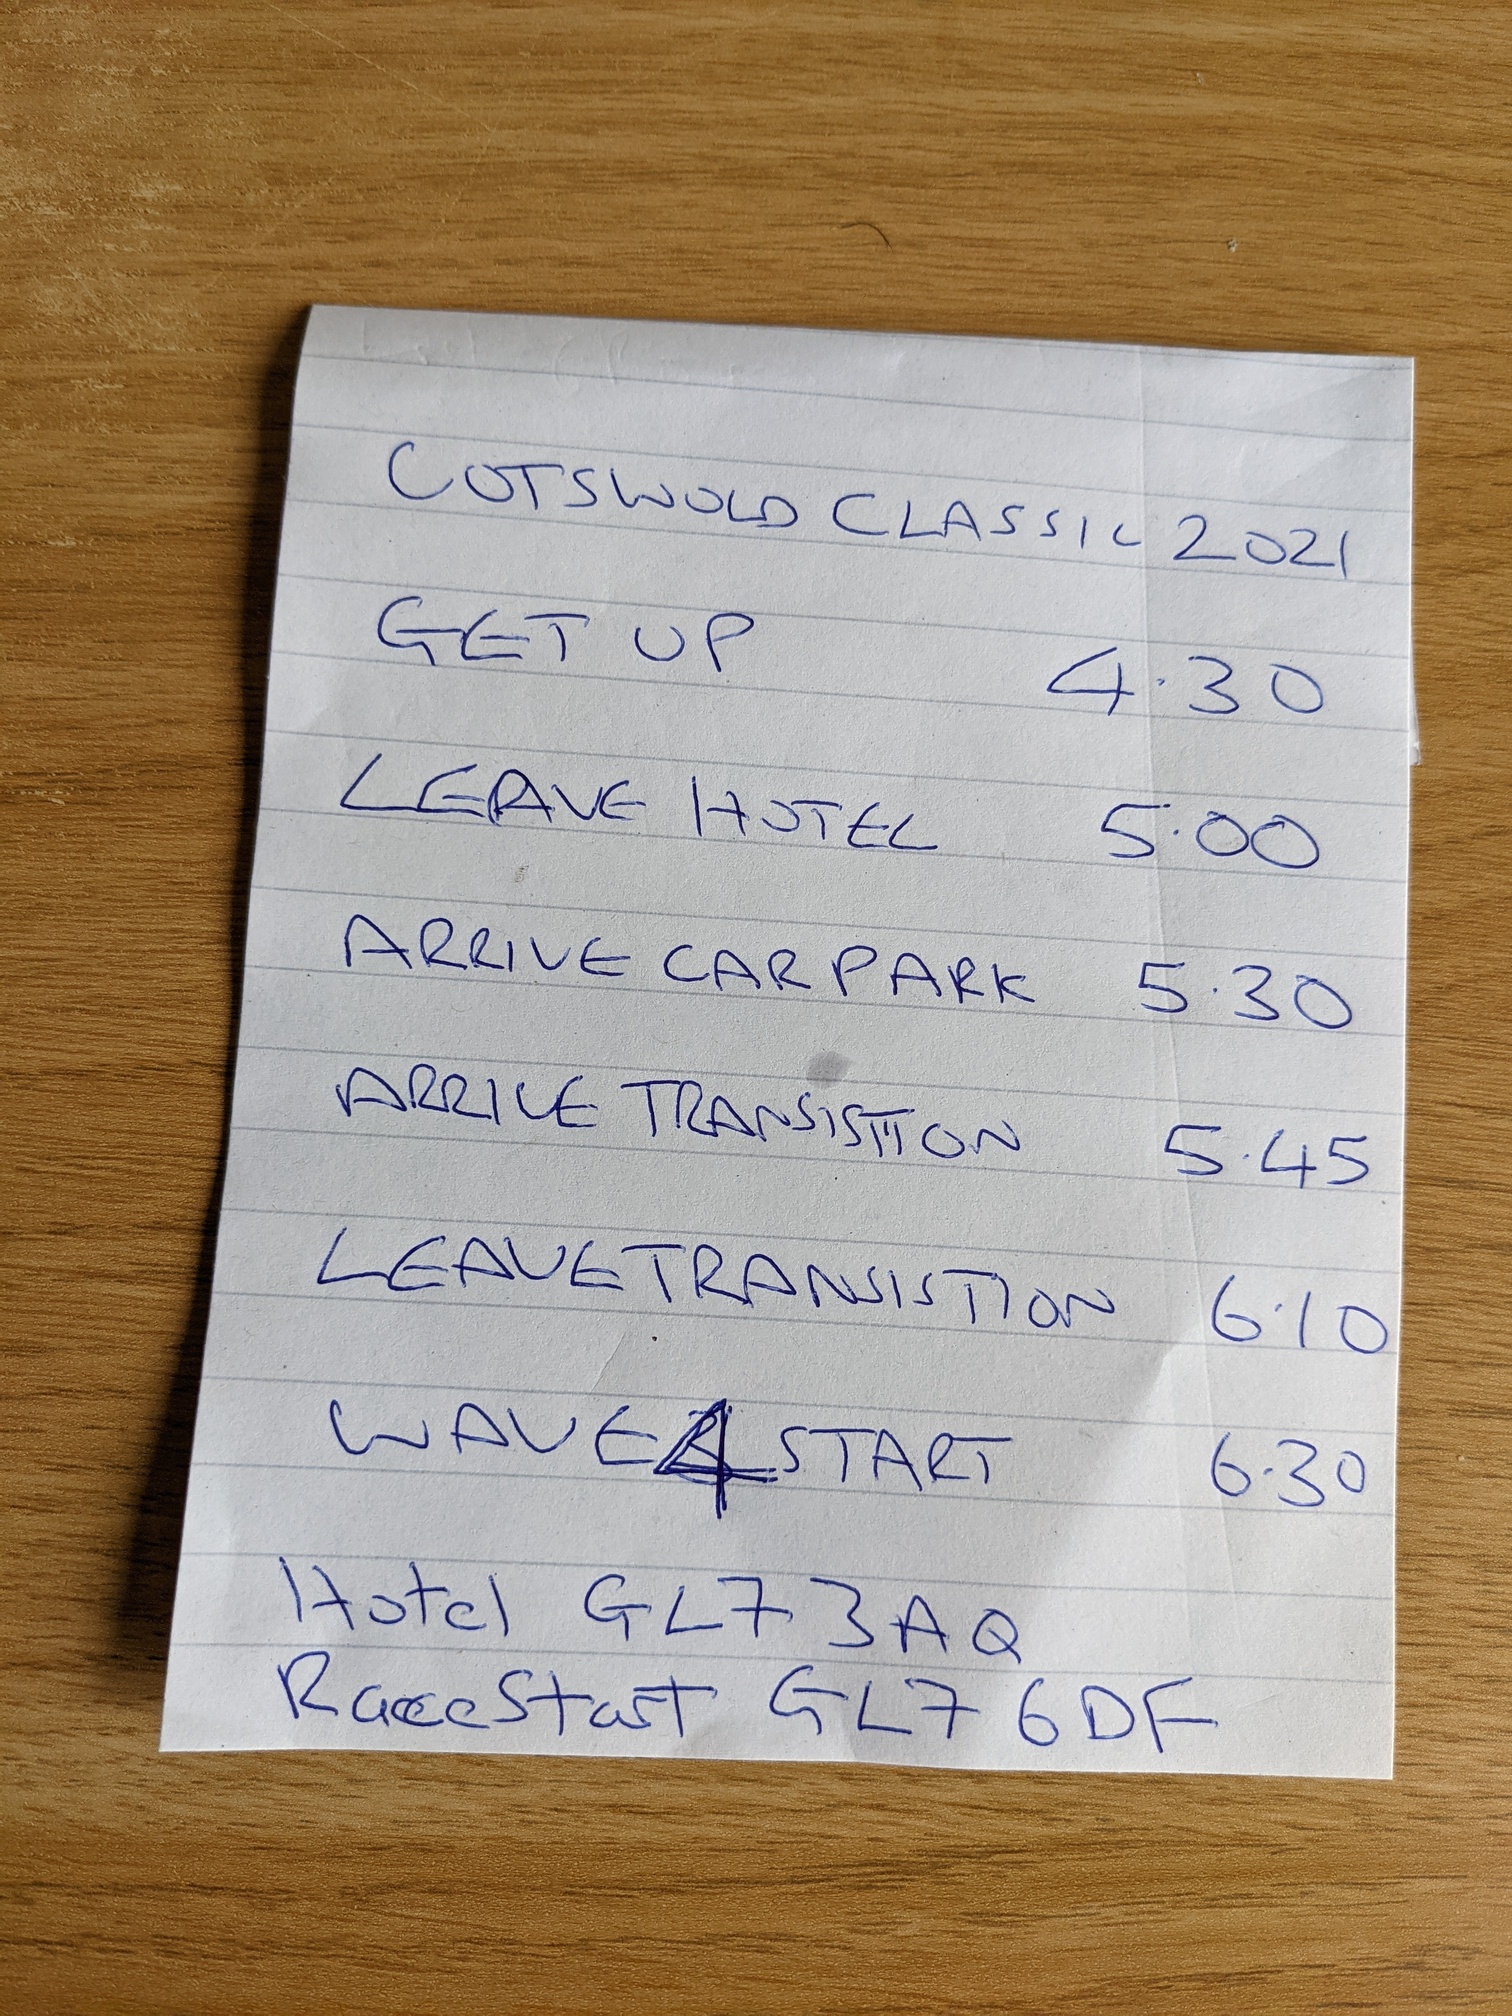 COTSWOLD CLASSIC 2021
GET UP 4.30
LEAVE HOTEL 5.00
ARRIVE CAR PARK 5.30
ARRIVE TRANSISTION 5.45
LEAVE TRANSISTION 6.10
WAVE 4 START 6.30
Hotel GL7 3AQ
Race Start GL7 6DF